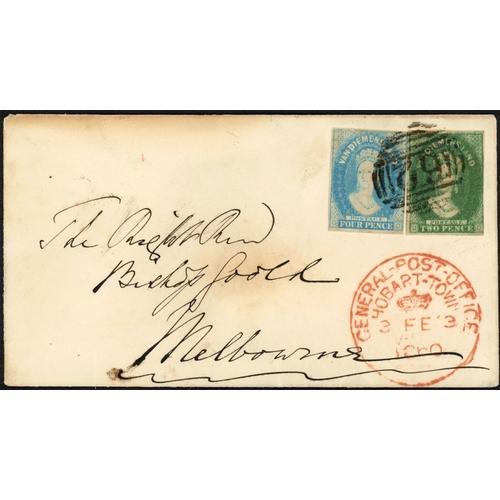 VAN DIEMENS
POSTAGE
FOUR PENCE
DIEMENS LAND
POSTAGE
TWO PENCE
The Right Revd
Bishop Goold
Melbourne
GENERAL-POST-OFFICE
HOBART-TOWN
3 FE 3
1860